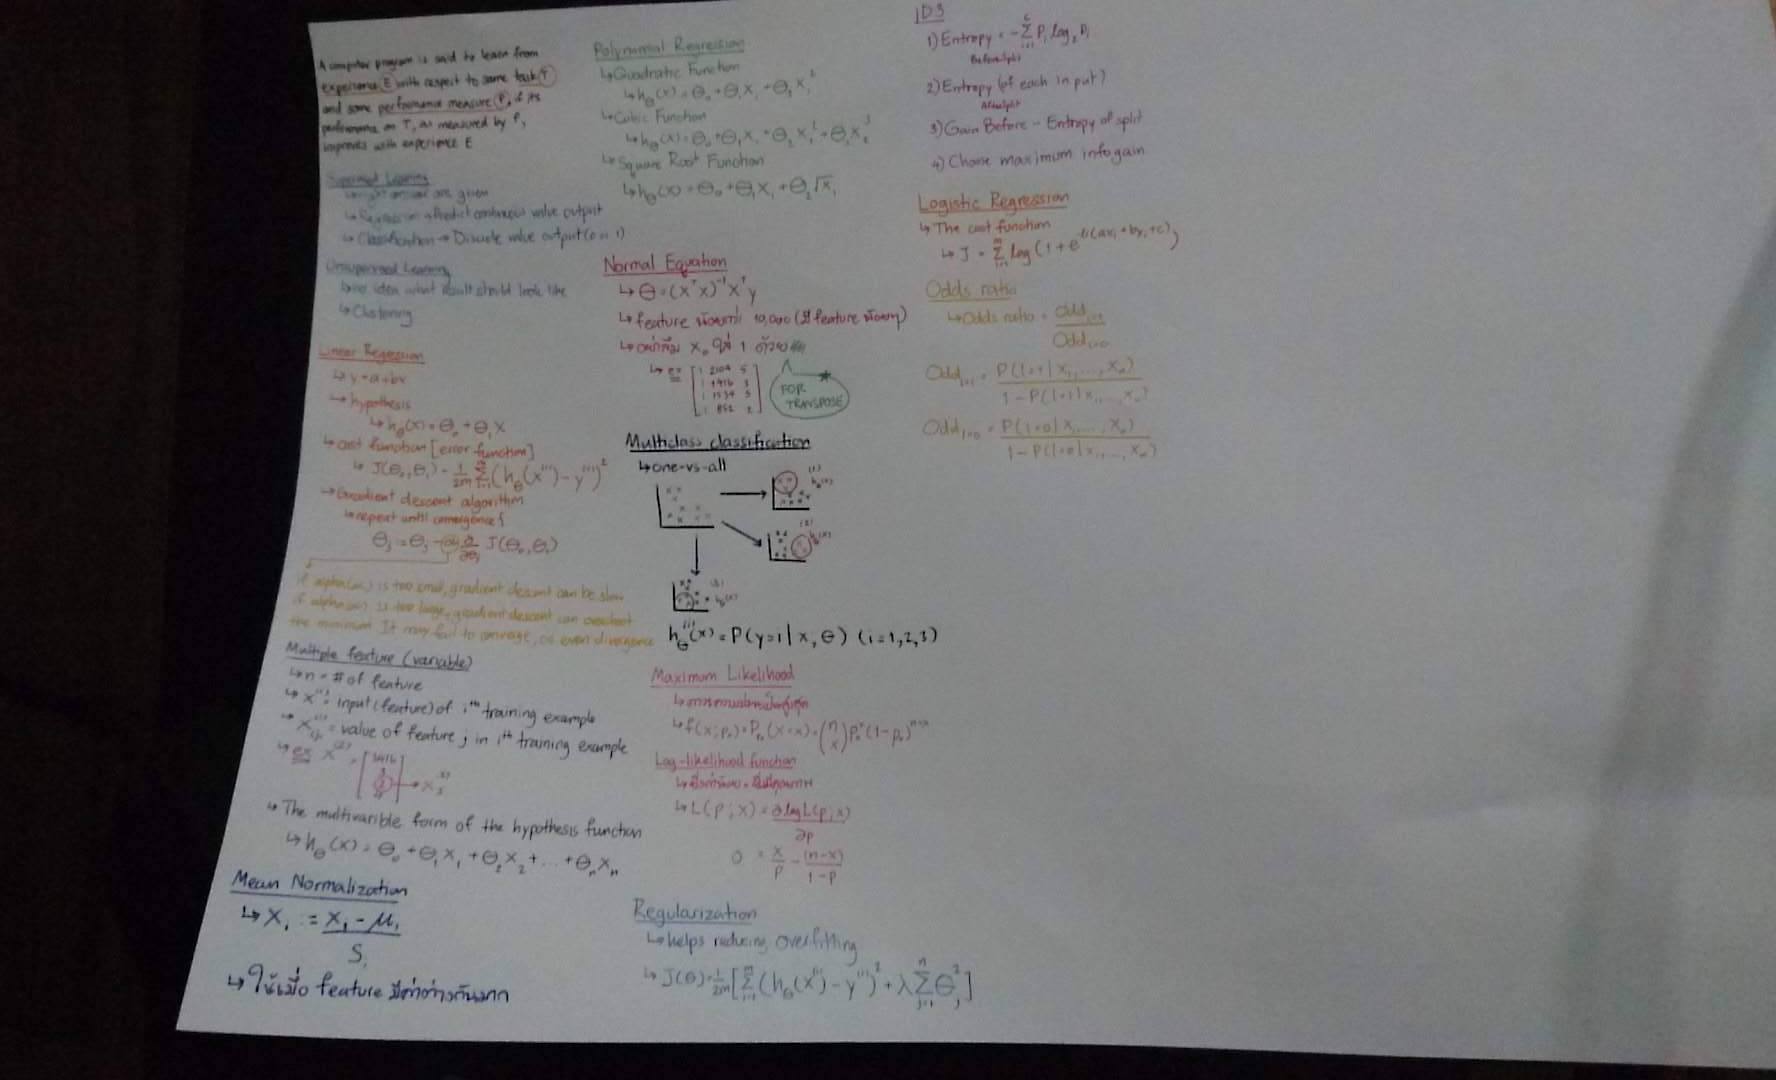 A computer program is said to learn from
experience E with respect to some task T
and some performance measure P, if its
performance on T, as measured by P,
improves with experience E
Supervised Learning
↳ right answer are given
↳ Regression → Predict continuous value output
↳ Classification → Discrete value output (0 or 1)
Unsupervised Learning
↳ no idea what result should look like
↳ Clustering
Linear Regression
↳ y = a + bx
↳ hypothesis
↳ hθ(x) = θ₀ + θ₁x
↳ cost function [error function]
↳ J(θ₀, θ₁) = 1/2m Σᵢ₌₁ᵐ (hθ(x⁽ⁱ⁾) - y⁽ⁱ⁾)²
↳ Gradient descent algorithm
↳ repeat until convergence {
θⱼ := θⱼ - α ∂/∂θⱼ J(θ₀, θ₁)
if alpha(α) is too small, gradient descent can be slow
if alpha(α) is too large, gradient descent can overshoot
the minimum. It may fail to converge, or even divergence
Multiple feature (variable)
↳ n = # of feature
↳ x⁽ⁱ⁾ = input (feature) of iᵗʰ training example
↳ xⱼ⁽ⁱ⁾ = value of feature j in iᵗʰ training example
↳ ex x⁽²⁾ = [1416 3 2] → x₃⁽²⁾
↳ The multivarible form of the hypothesis function
↳ hθ(x) = θ₀ + θ₁x₁ + θ₂x₂ + ... + θₙxₙ
Mean Normalization
↳ xᵢ := (xᵢ - μᵢ) / Sᵢ
↳ ใช้เมื่อ feature มีค่าต่างกันมาก
Polynomial Regression
↳ Quadratic Function
↳ hθ(x) = θ₀ + θ₁x₁ + θ₂x₁²
↳ Cubic Function
↳ hθ(x) = θ₀ + θ₁x₁ + θ₂x₁² + θ₃x₁³
↳ Square Root Function
↳ hθ(x) = θ₀ + θ₁x₁ + θ₂√x₁
Normal Equation
↳ θ = (xᵀx)⁻¹xᵀy
↳ feature น้อยกว่า 10,000 (มี feature น้อยๆ)
↳ อย่าลืม x₀ ใส่ 1 ด้วย
↳ ex [1 2104 5
1 1416 3
1 1534 3
1 852 2]
FOR
TRANSPOSE
Multiclass classification
↳ one-vs-all
hθ⁽¹⁾(x)
hθ⁽²⁾(x)
hθ⁽³⁾(x)
hθ⁽ⁱ⁾(x) = P(y=i | x, θ) (i=1,2,3)
Maximum Likelihood
↳ f(x; p₀) = P (X=x) = (n x) p₀ˣ(1-p₀)ⁿ⁻ˣ
Log-likelihood function
↳ L(p; x) = ∂ log L(p; x) / ∂p
0 = x/p - (n-x)/(1-p)
Regularization
↳ helps reducing overfitting
↳ J(θ) = 1/2m [Σᵢ₌₁ᵐ (hθ(x⁽ⁱ⁾) - y⁽ⁱ⁾)² + λ Σⱼ₌₁ⁿ θⱼ²]
ID3
1) Entropy = -Σᵢ₌₁ᶜ Pᵢ log₂ Pᵢ
Before split
2) Entropy (of each input)
After split
3) Gain Before - Entropy of split
4) Choose maximum info gain
Logistic Regression
↳ The cost function
↳ J = Σᵢ₌₁ᵐ log(1 + e^-ℓᵢ(axᵢ + byᵢ + c))
Odds ratio
↳ Odds ratio = Odd₍ₗ₌₁₎ / Odd₍ₗ₌₀₎
Odd₍ₗ₌₁₎ = P(l=1 | x₁, ..., xₙ) / 1 - P(l=1 | x₁, ..., xₙ)
Odd₍ₗ₌₀₎ = P(l=0 | x₁, ..., xₙ) / 1 - P(l=0 | x₁, ..., xₙ)